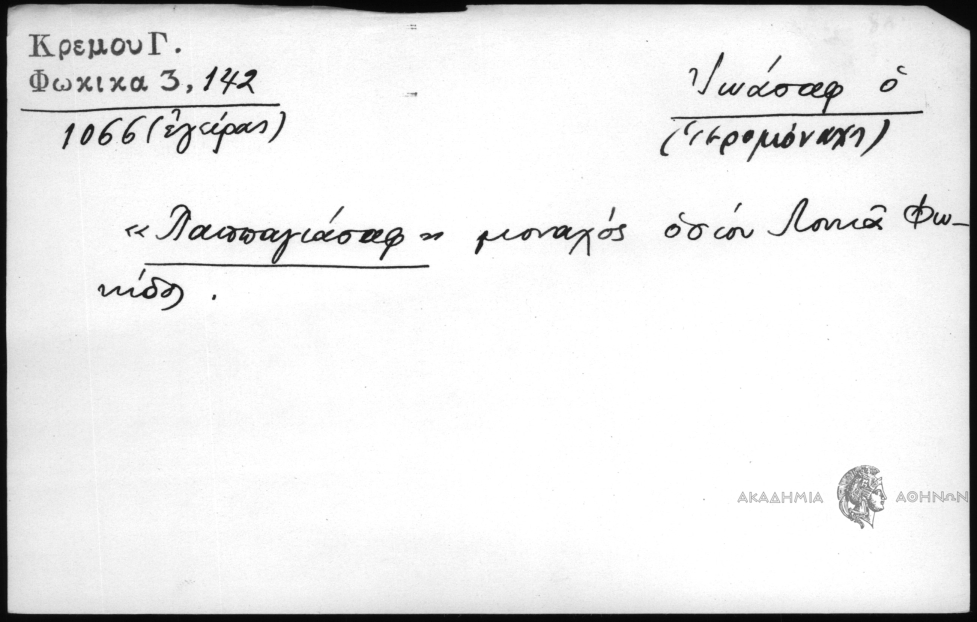 Κρεμου Γ.
Φωκικα 3, 142
1066 (ἐγείρας)
Ἰωάσαφ ὁ
(ἱερομόναχος)
«Παππαγιάσαφ» μοναχός ὁσίου Λουκᾶ Φω-
κίδος.
ΑΚΑΔΗΜΙΑ ΑΘΗΝΩΝ